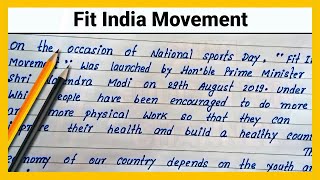 Fit India Movement
On the occasion of National sports Day, "Fit I
Movement". was launched by Hon'ble Prime Minister
Shri Narendra Modi on 29th August 2019. under
Whi people have been encouraged to do more
an more physical work so that they can
ore their health and build a healthy coun
Th
nomy of our country depends on the youth an